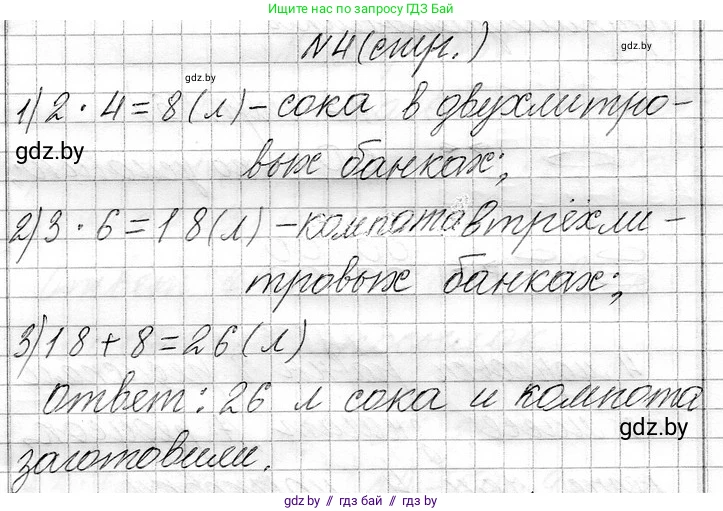 Ищите нас по запросу ГДЗ Бай
№4 (стр. )
gdz.by
gdz.by
1) 2 · 4 = 8 (л) – сока в двухлитро-
gdz.by
вых банках;
2) 3 · 6 = 18 (л) – компота в трёхли-
тровых банках;
3) 18 + 8 = 26 (л)
Ответ: 26 л сока и компота
gdz.by
заготовили.
gdz.by // гдз бай // гдз by